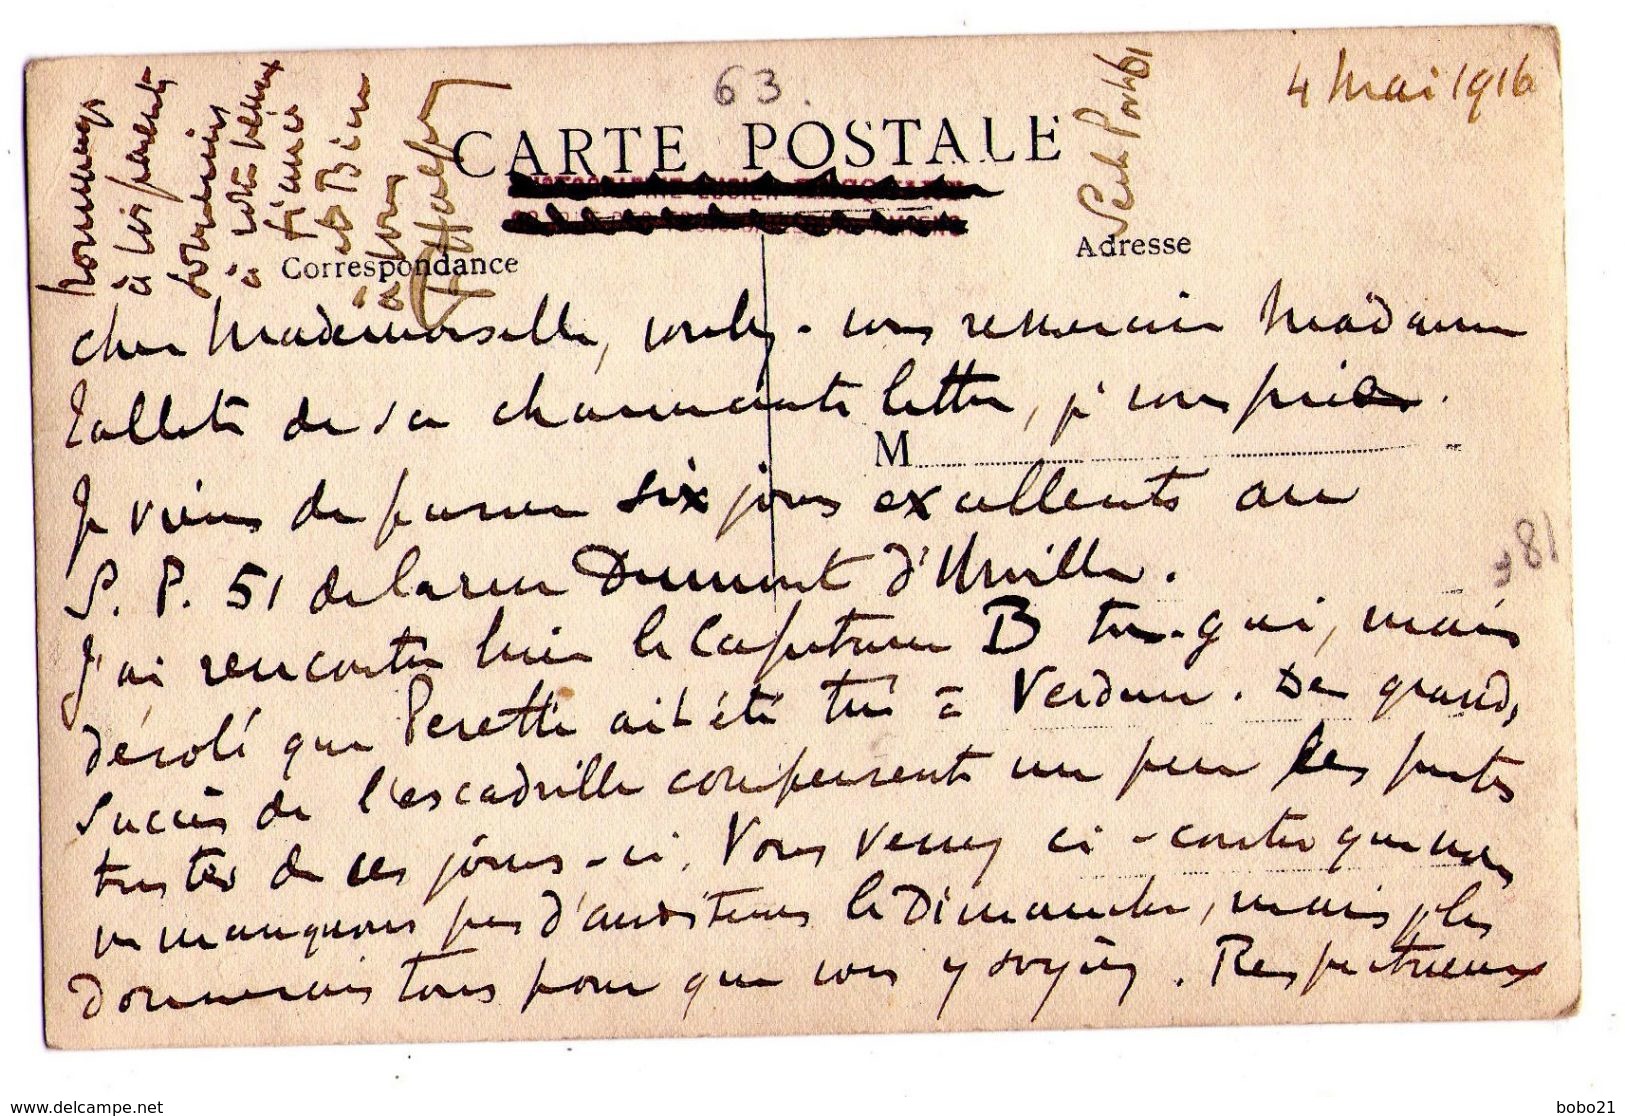 4 Mai 1916
63.
CARTE POSTALE
Correspondance
Adresse
M
Cher Mademoiselle, voulez-vous remercier Madame
Tallet de sa charmante lettre, je vous prie.
Je viens de passer six jours excellents au
S. P. 51 de la rue Dumont d'Urville.
J'ai rencontré hier le Capitaine B très gai, mais
désolé que Peretti ait été tué à Verdun. De grands
succès de l'escadrille compensent un peu les pertes
tristes de ces jours-ci. Vous verrez ci-contre que nous
ne manquons pas d'auditeurs le Dimanche, mais je les
donnerais tous pour que vous y soyiez. Respectueux
hommages
à vos parents
souvenirs
à votre
fiancé
et Bien
à vous
81
www.delcampe.net
bobo21